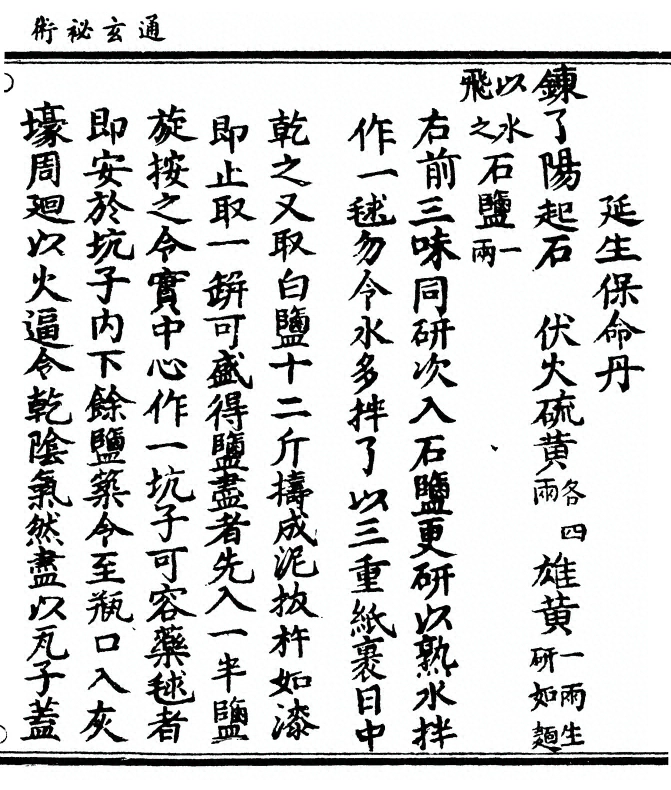 通玄祕術
延生保命丹
鍊了陽起石　伏火硫黃各四兩雄黃一兩生研如麵
以水飛之石鹽一兩
右前三味同研次入石鹽更研以熟水拌
作一毬勿令水多拌了以三重紙裹日中
乾之又取白鹽十二斤擣成泥抜杵如漆
即止取一缾可盛得鹽盡者先入一半鹽
旋按之令實中心作一坑子可容藥毬者
即安於坑子內下餘鹽藥令至瓶口入灰
壕周廻以火逼令乾陰氣然盡以瓦子蓋